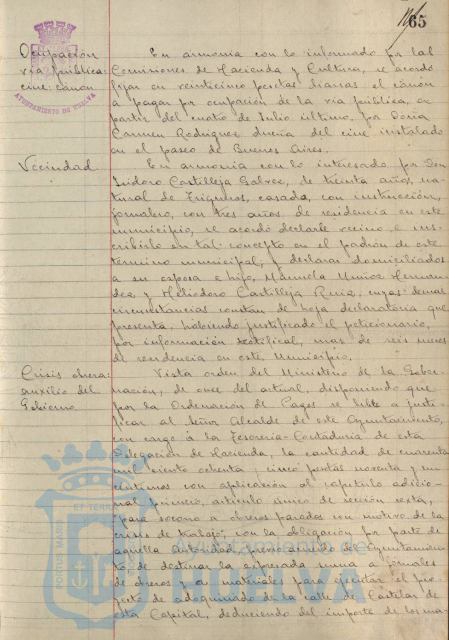 65
Ocupación
vía pública:
cine: canon
AYUNTAMIENTO DE HUELVA
En armonia con lo informado por las
Comisiones de Hacienda y Cultura, se acordó
fijar en veinticinco pesetas diarias el cánon
a pagar por ocupación de la via pública, a
partir del cuatro de Julio último, por Doña
Carmen Rodriguez dueña del cine instalado
en el paseo de Buenos Aires.
Vecindad
En armonia con lo interesado por Don
Isidoro Castilleja Galvez, de treinta años, na-
tural de Trigueros, casado, con instrucción,
jornalero, con tres años de residencia en este
municipio, se acordó declararle vecino e ins-
cribirlo en tal concepto en el padrón de este
termino municipal, y declarar domiciliados
a su esposa e hijo, Manuela Muñoz Hernan-
dez y Heliodoro Castilleja Ruiz, cuyas demas
circunstancias constan de hoja declaratoria que
presenta, habiendo justificado el peticionario,
por información testifical, mas de seis meses
de residencia en este Municipio.
Crisis obrera:
auxilio del
Gobierno
Vista orden del Ministerio de la Gober-
nación, de once del actual, disponiendo que
por la Ordenación de Pagos se libre a justi-
ficar al Señor Alcalde de este Ayuntamiento,
con cargo á la Tesorería-Contaduría de esta
Delegación de Hacienda, la cantidad de cuarenta
mil ciento ochenta y cinco pesetas noventa y un
centimos con aplicación al capitulo adicio-
nal primero, articulo único de sección sexta,
"para socorro a obreros parados con motivo de la
crisis de trabajo", con la obligación por parte de
aquella Autoridad, previo acuerdo del Ayuntamien-
to, de destinar la expresada suma a jornales
de obreros y a materiales para ejecutar el pro-
yecto de adoquinado de la calle de Castelar de
esta Capital, deduciendo del importe de los ma-
PORTUS MARIS
ET TERRAE
Ayuntamiento de
HUELVA